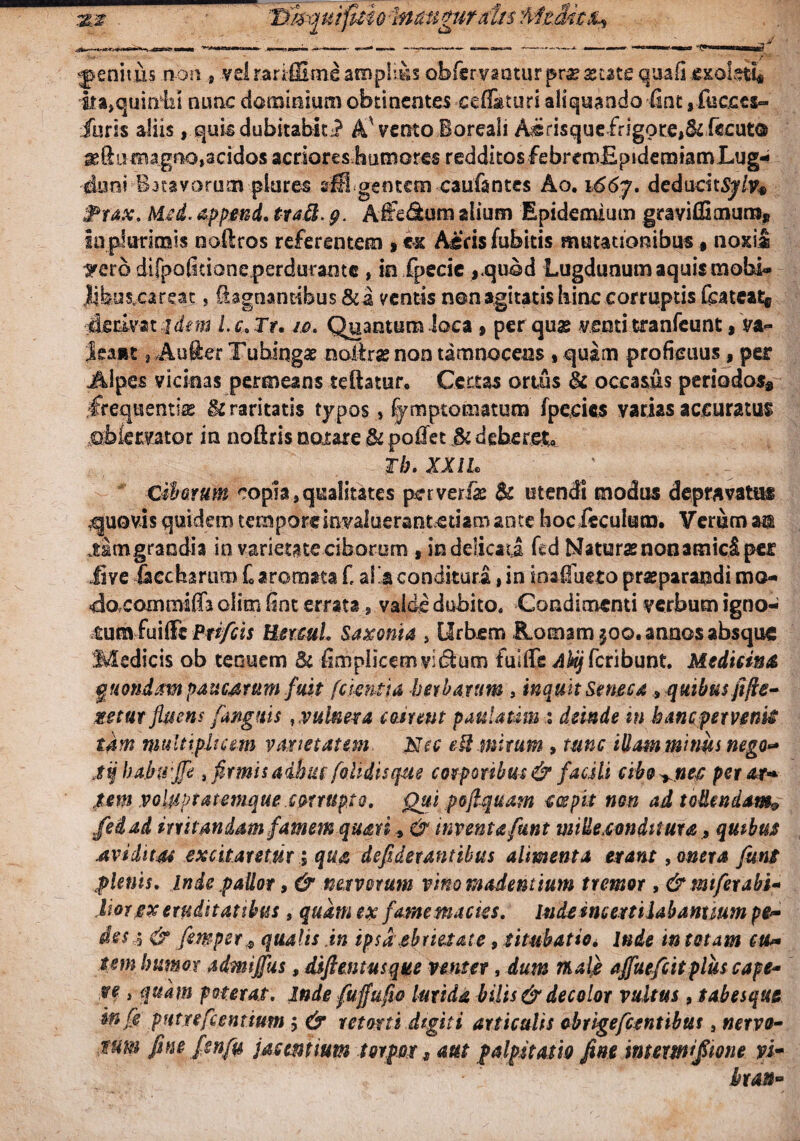 22 Disquisitio Inauguralis Medica,
penitus non, vel rarissime amplius observantur præ ætate quasi exoleti,
ita, quin hi nunc dominium obtinentes cessaturi aliquando sint, succes-
suris aliis, quis dubitabit? A' vento Boreali Aërisque frigore, & secuto
æstu magno, acidos acriores humores redditos febrem Epidemiam Lug-
duni Batavorum plures affligentem causantes Ao. 1667. deducit Sylv.
Prax. Med. append. tract. 9. Affectum alium Epidemium gravissimum,
in plurimis nostros referentem, ex Aëris subitis mutationibus, noxiâ
vero dispositione perdurante, in specie, quòd Lugdunum aquis mobi-
libus careat, stagnantibus & à ventis non agitatis hinc corruptis scateat,
derivat idem l. c. Tr. 10. Quantum loca, per quæ venti transeunt, va-
leant, Auster Tubingæ nostræ non tàm nocens, quàm proficuus, per
Alpes vicinas permeans testatur. Certas ortûs & occasûs periodos,
frequentiæ & raritatis typos, symptomatum species varias accuratus
observator in nostris notare & posset & deberet.
Th. XXII.
Ciborum copia, qualitates perversæ & utendi modus depravatus
quovis quidem tempore invaluerant etiam ante hoc seculum. Verùm an
tàm grandia in varietate ciborum, in delicatâ sed Naturæ non amicâ per
sive saccharum s. aromata s. alia conditurâ, in inassueto præparandi mo-
do commissa olim sint errata, valdè dubito. Condimenti verbum igno-
tum fuisse Priscis Hercul. Saxonia, Urbem Romam 500. annos absque
Medicis ob tenuem & simplicem victum fuisse Alij scribunt. Medicina
quondam paucarum fuit scientia herbarum, inquit Seneca, quibus siste-
retur fluens sanguis, vulnera coirent paulatim: deinde in hanc pervenit
tàm multiplicem varietatem. Nec est mirum, tunc illam minùs nego-
tij habuisse, firmis adhuc solidisque corporibus & facili cibo, nec per ar-
tem voluptatemque corrupto. Qui postquam cœpit non ad tollendam,
sed ad irritandam famem quæri, & inventæ sunt mille conditura, quibus
aviditas excitaretur; quæ desiderantibus alimenta erant, onera sunt
plenis. Inde pallor, & nervorum vino madentium tremor, & miserabi-
lior ex cruditatibus, quàm ex fame macies. Inde incerti labantium pe-
des; & semper, qualis in ipsâ ebrietate, titubatio. Inde in totam cu-
tem humor admissus, distentusque venter, dum malè assuescit plùs cape-
re, quàm poterat. Inde suffusio lurida bilis & decolor vultus, tabesque
in se putrescentium; & retorti digiti articulis obrigescentibus, nervo-
rum sine sensu jacentium torpor, aut palpitatio sine intermissione vi-
bran-